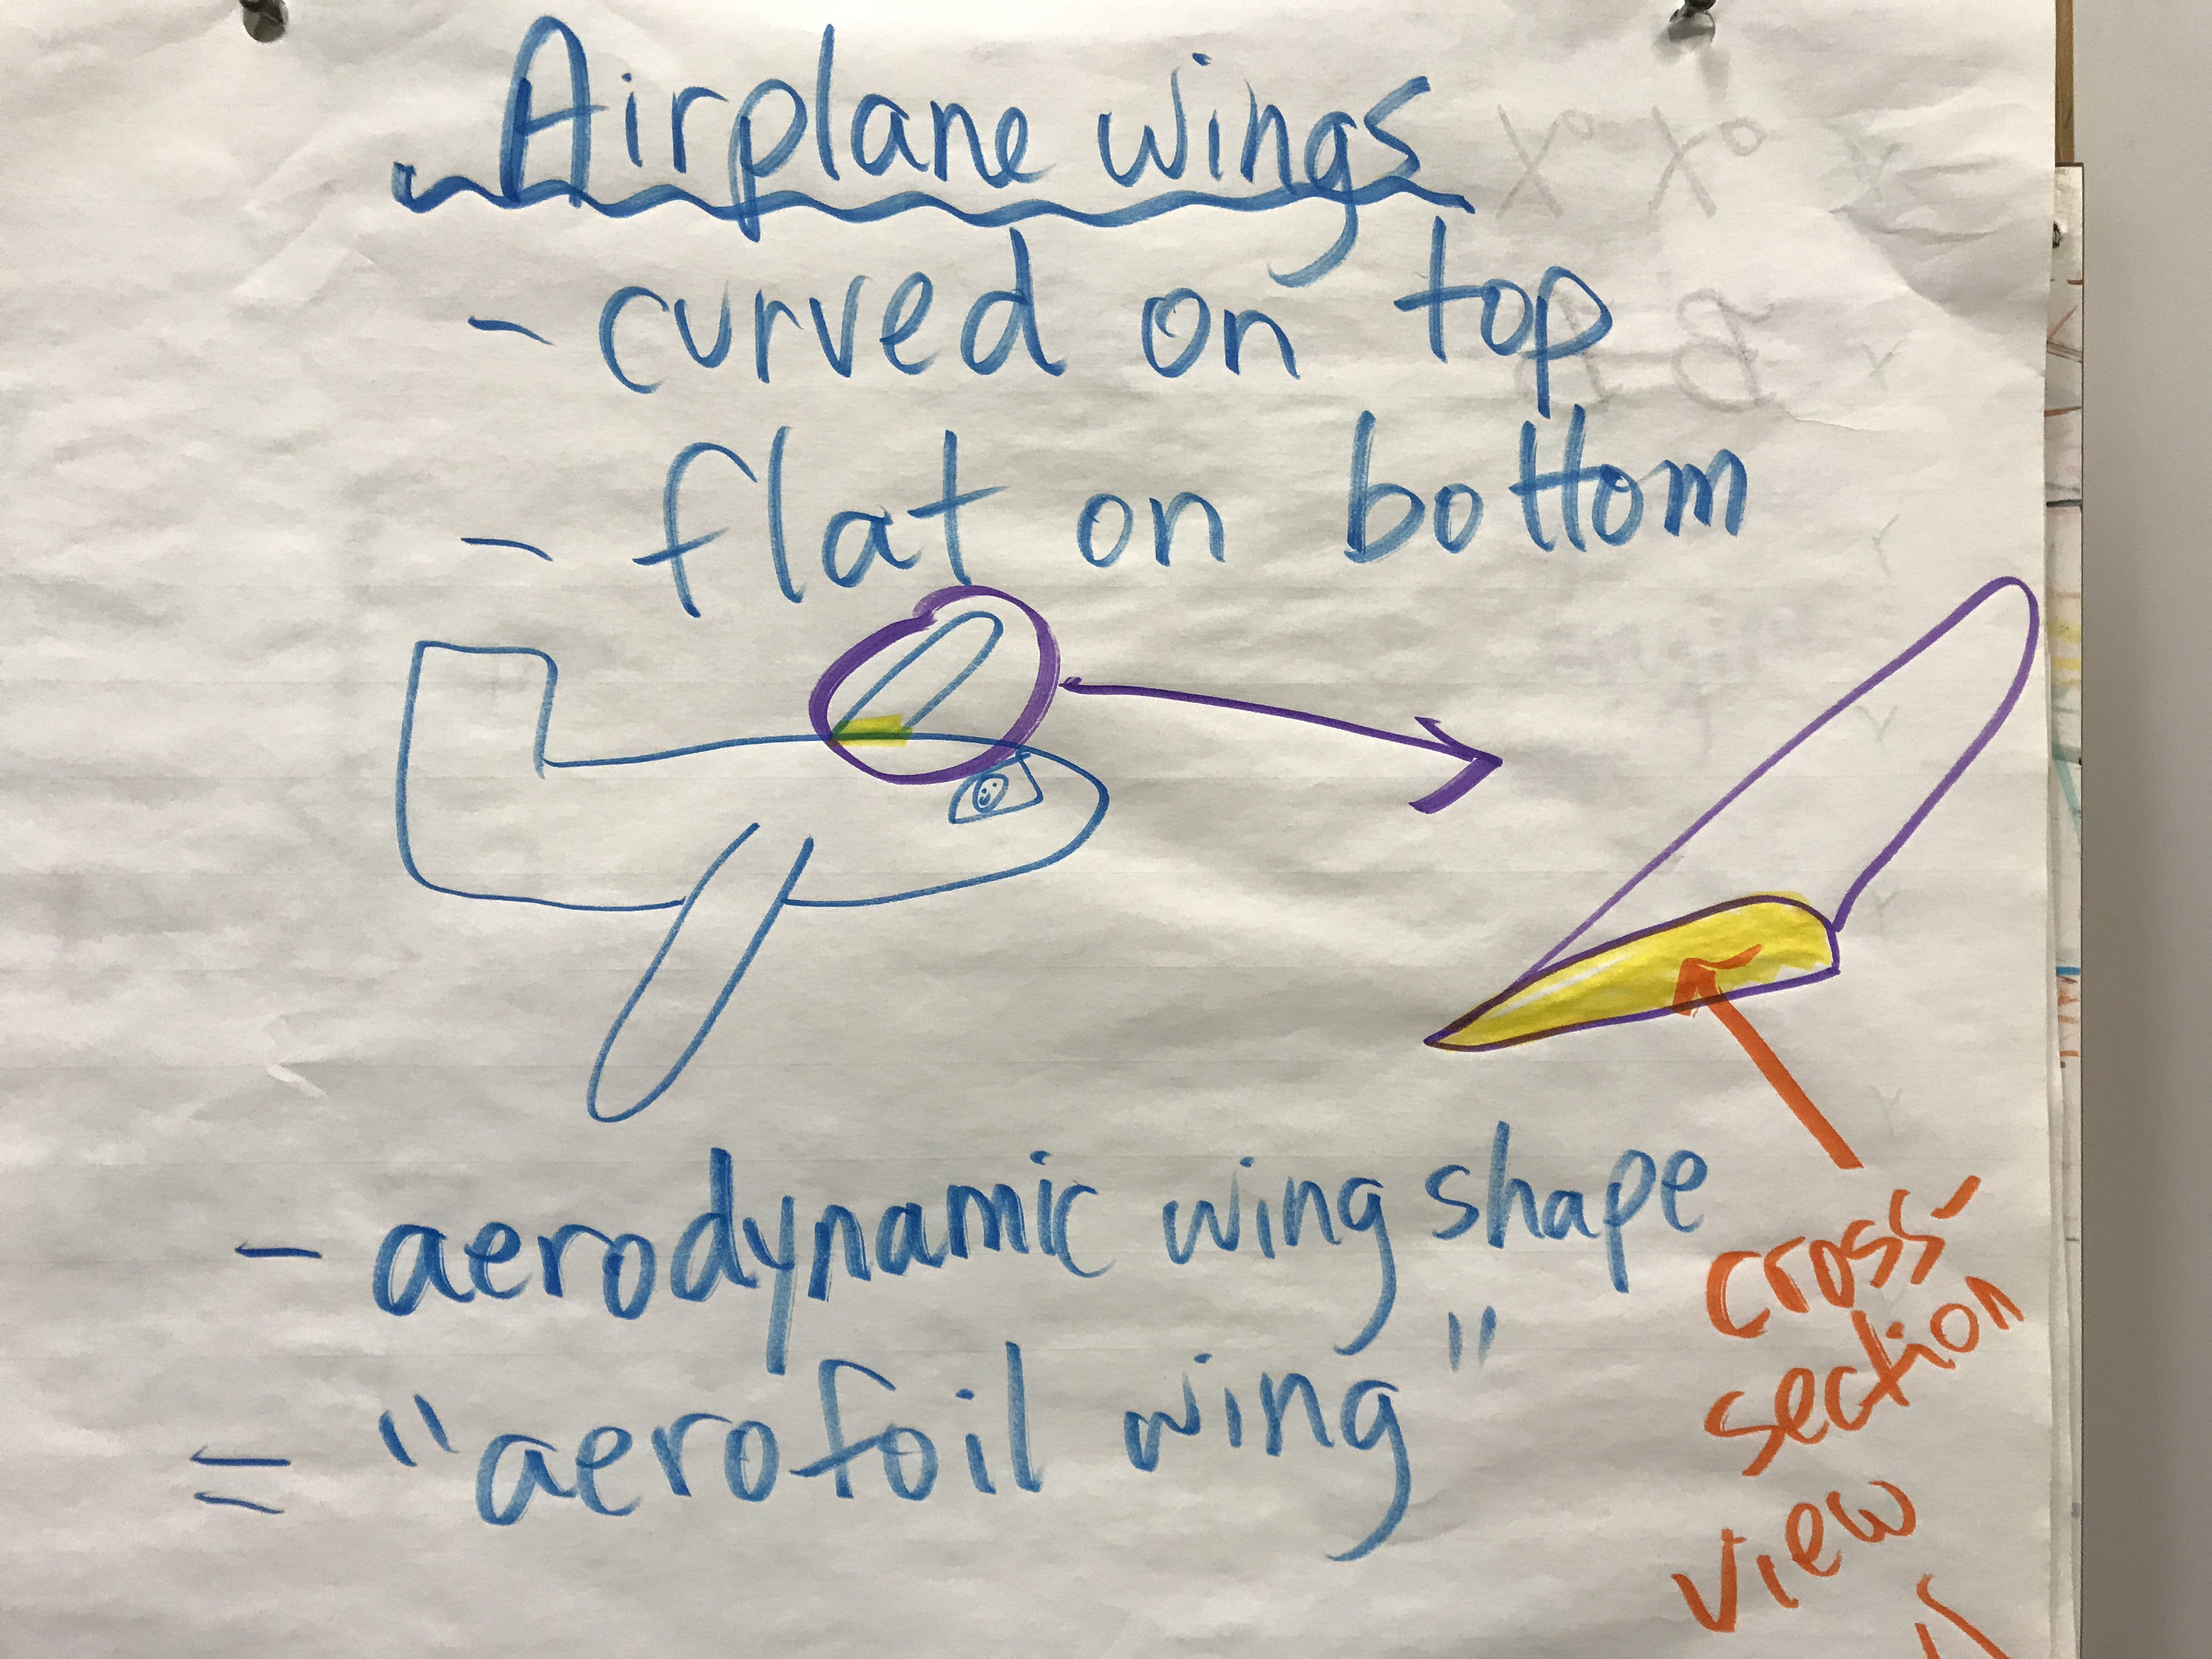 Airplane wings
- curved on top
- flat on bottom
- aerodynamic wing shape
= "aerofoil wing"
cross-
section
view